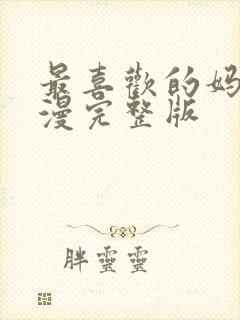 最喜歡的妈
漫完整版
胖靈靈